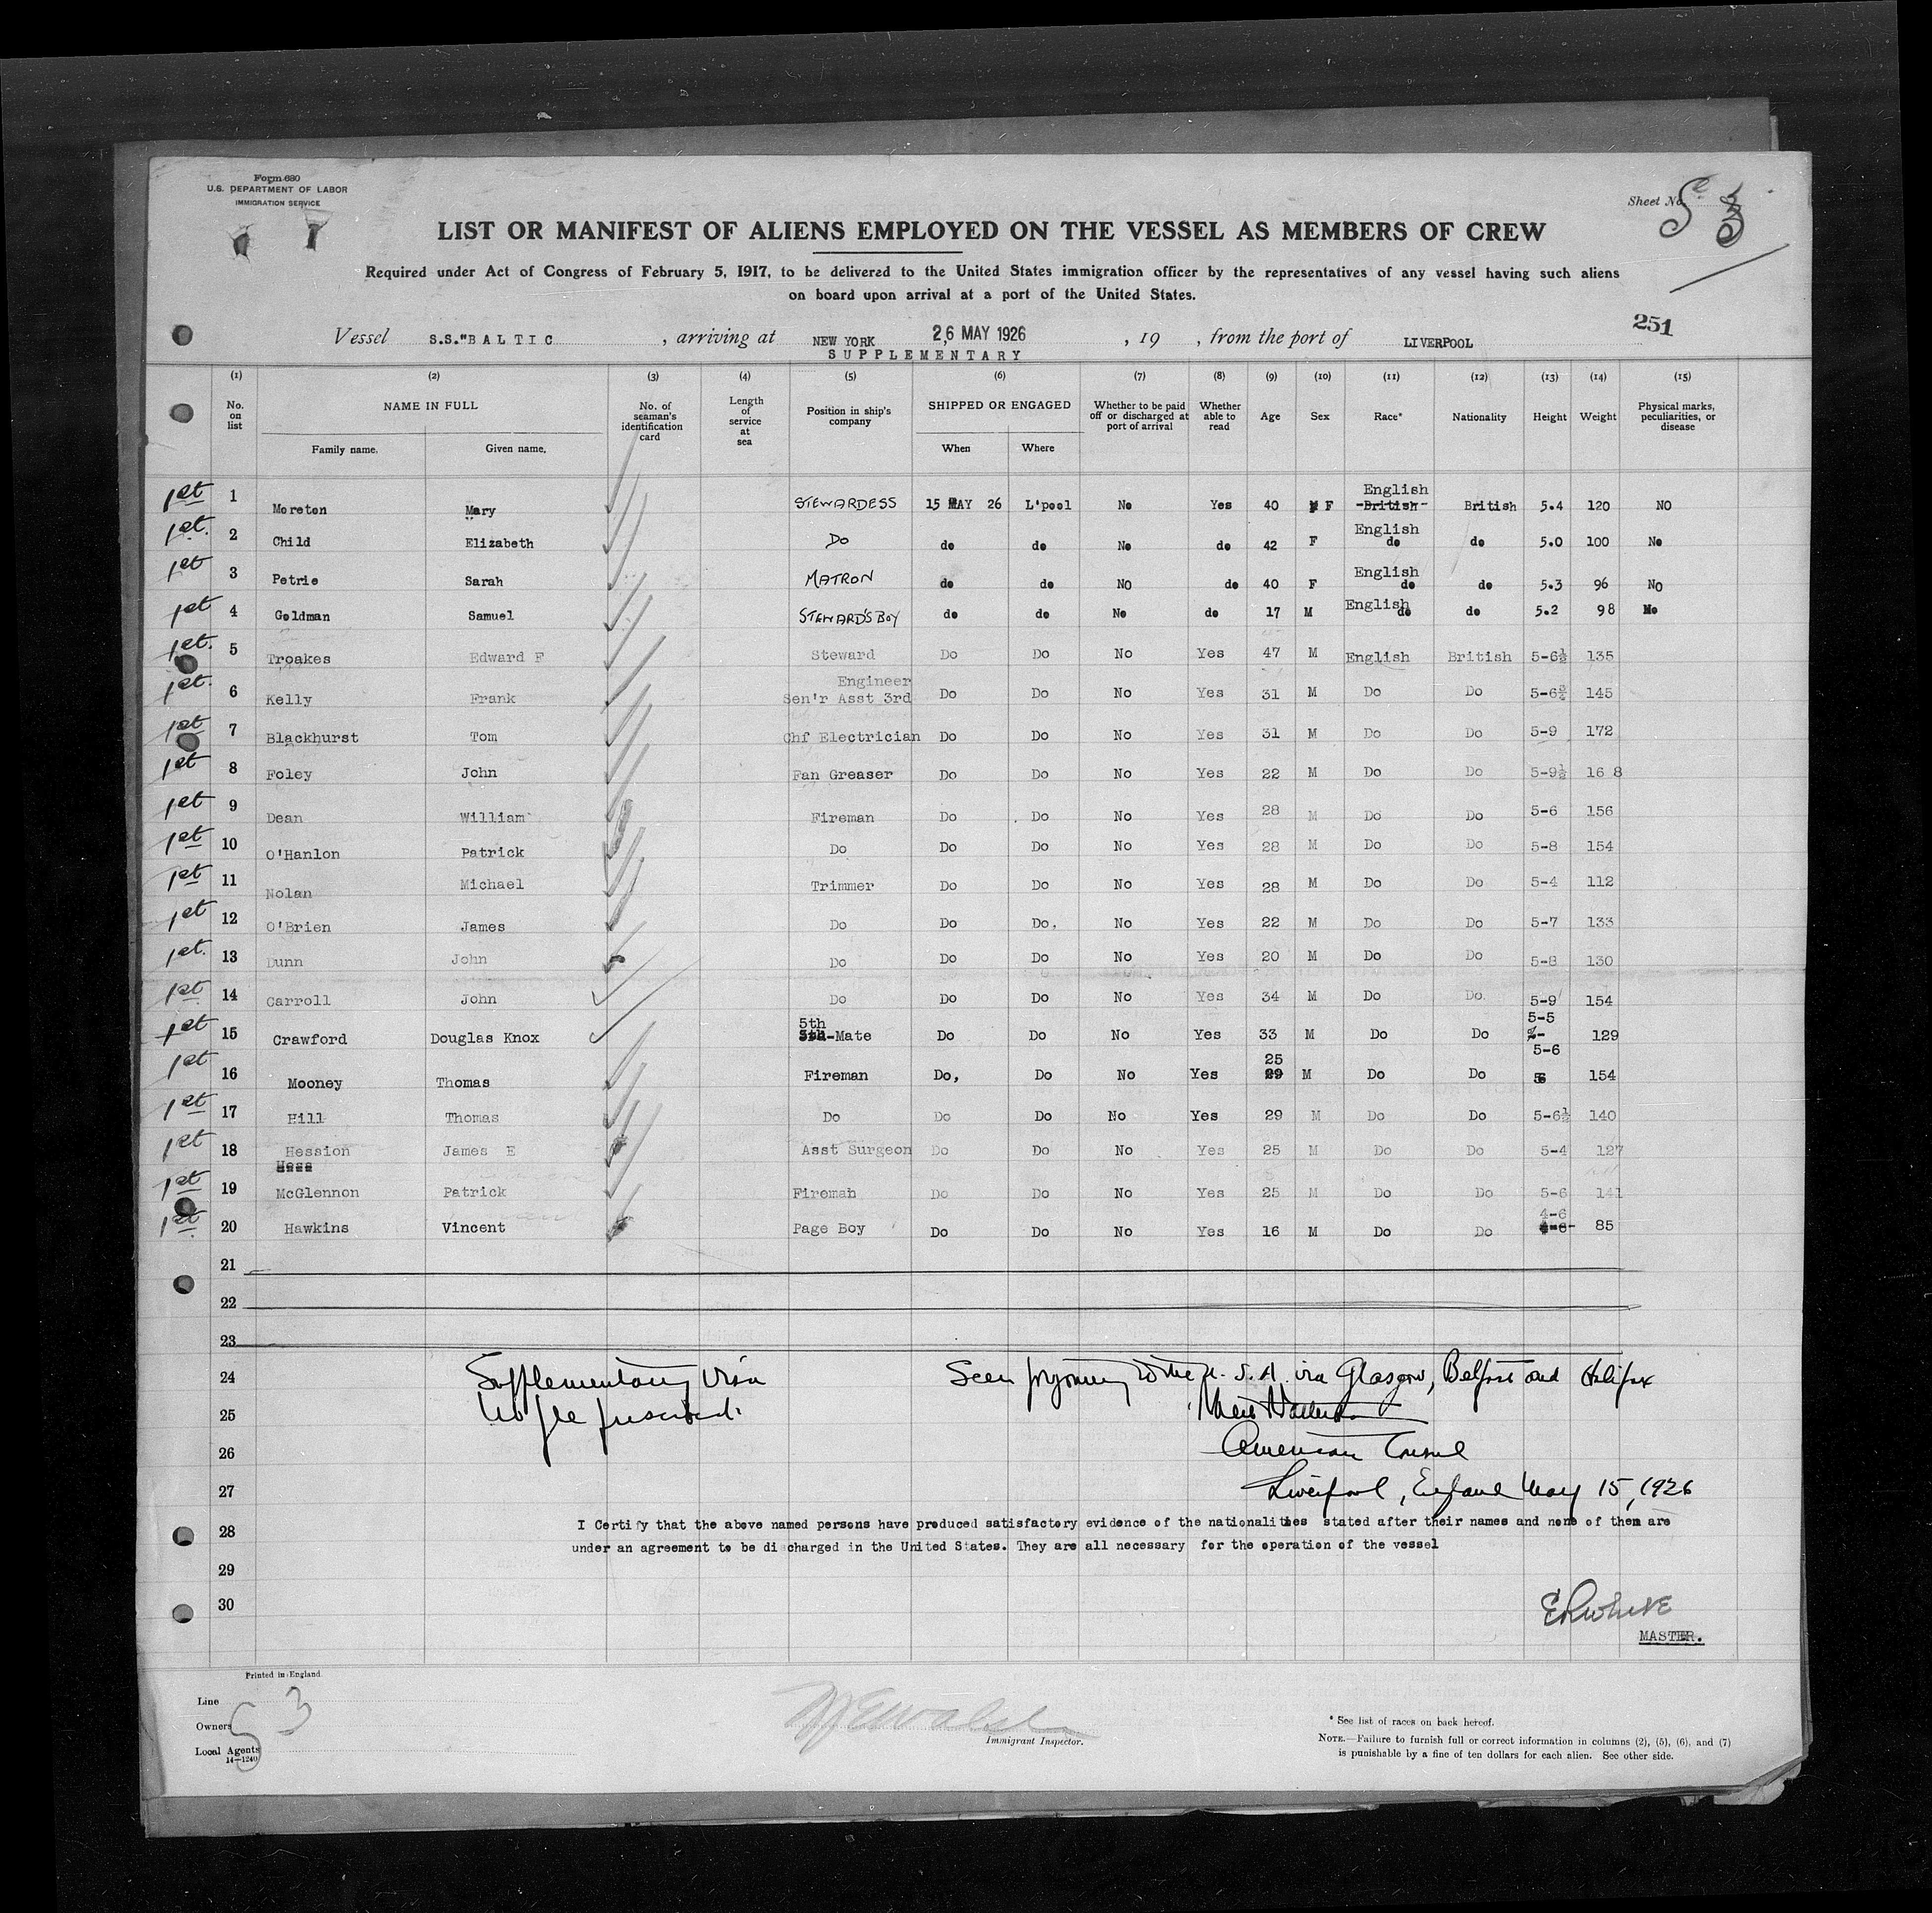 Form 680
U.S. DEPARTMENT OF LABOR
IMMIGRATION SERVICE
Sheet No. S 3
LIST OR MANIFEST OF ALIENS EMPLOYED ON THE VESSEL AS MEMBERS OF CREW
Required under Act of Congress of February 5, 1917, to be delivered to the United States immigration officer by the representatives of any vessel having such aliens
on board upon arrival at a port of the United States.
251
Vessel S.S."BALTIC , arriving at NEW YORK 26 MAY 1926 , 19 , from the port of LIVERPOOL
SUPPLEMENTARY
(1) (2) (3) (4) (5) (6) (7) (8) (9) (10) (11) (12) (13) (14) (15)
No. on list NAME IN FULL No. of seaman's identification card Length of service at sea Position in ship's company SHIPPED OR ENGAGED Whether to be paid off or discharged at port of arrival Whether able to read Age Sex Race* Nationality Height Weight Physical marks, peculiarities, or disease
Family name. Given name. When Where
1st 1 Moreton Mary STEWARDESS 15 MAY 26 L'pool No Yes 40 F English British British 5.4 120 NO
1st. 2 Child Elizabeth Do do do No do 42 F English do do 5.0 100 No
1st 3 Petrie Sarah MATRON do do NO do 40 F English do do 5.3 96 No
1st 4 Goldman Samuel STEWARD'S BOY do do No do 17 M English do do 5.2 98 No
1st. 5 Troakes Edward F Steward Do Do No Yes 47 M English British 5-6½ 135
1st. 6 Kelly Frank Engineer Sen'r Asst 3rd Do Do No Yes 31 M Do Do 5-6¾ 145
1st 7 Blackhurst Tom Chf Electrician Do Do No Yes 31 M Do Do 5-9 172
1st 8 Foley John Fan Greaser Do Do No Yes 22 M Do Do 5-9½ 16 8
1st 9 Dean William Fireman Do Do No Yes 28 M Do Do 5-6 156
1st 10 O'Hanlon Patrick Do Do Do No Yes 28 M Do Do 5-8 154
1st 11 Nolan Michael Trimmer Do Do No Yes 28 M Do Do 5-4 112
1st 12 O'Brien James Do Do Do. No Yes 22 M Do Do 5-7 133
1st. 13 Dunn John Do Do Do No Yes 20 M Do Do 5-8 130
1st 14 Carroll John Do Do Do No Yes 34 M Do Do. 5-9 154
1st 15 Crawford Douglas Knox 5th Mate Do Do No Yes 33 M Do Do 5-5 129
1st 16 Mooney Thomas Fireman Do, Do No Yes 25 29 M Do Do 5-6 154
1st 17 Hill Thomas Do Do Do No Yes 29 M Do Do 5-6½ 140
1st 18 Hession James E Asst Surgeon Do Do No Yes 25 M Do Do 5-4 127
1st 19 McGlennon Patrick Fireman Do Do No Yes 25 M Do Do 5-6 141
1st. 20 Hawkins Vincent Page Boy Do Do No Yes 16 M Do Do 4-6 85
21
22
23
24 Supplementary visa Seen for journey to the U.S.A. via Glasgow, Belfast and Halifax
25 No fee prescribed.
26 American Consul
27 Liverpool, England May 15, 1926
28 I Certify that the above named persons have produced satisfactory evidence of the nationalities stated after their names and none of them are
under an agreement to be discharged in the United States. They are all necessary for the operation of the vessel
29
30
MASTER.
Printed in England
Line
Owners
Local Agents
14—1240
S 3
Immigrant Inspector.
* See list of races on back hereof.
NOTE.—Failure to furnish full or correct information in columns (2), (5), (6), and (7)
is punishable by a fine of ten dollars for each alien. See other side.